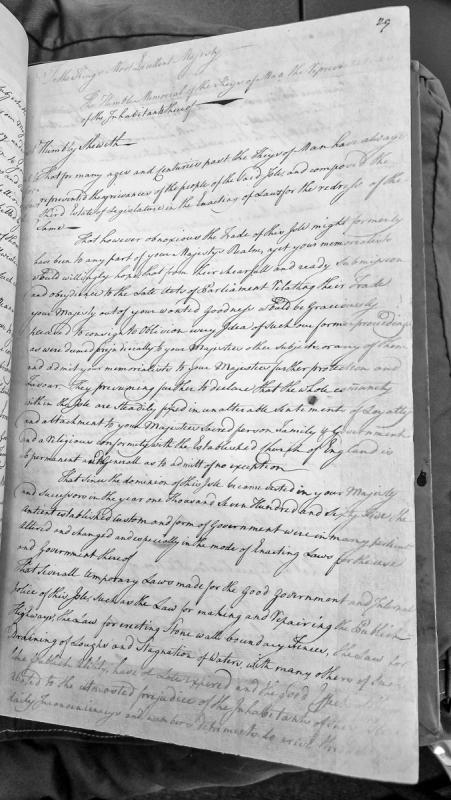 29
To the Kings Most Excellent Majesty
The Humble Memorial of the Keys of Man the Represen
of the Inhabitants thereof
Humbly Sheweth
That for many ages and Centuries past the Keys of Man have always
represented the grievances of the people of the said Isle and composed the
third Estate of Legislature in the Enacting of Laws for the redress of the
Same
That however obnoxious the Trade of this Isle might formerly
have been to any part of your Majestys Realm, yet your memorialists
would willingly hope that from their chearfull and ready Submission
and obedience to the Late Acts of Parliament Relating their Trade
your Majesty out of your wonted Goodness would be Graciously
pleased to consign to Oblivion every Idea of such our former proceedings
as were deemed prejudicial to your Majesties other subjects or any of them
and admit your memorialists to your Majesties further protection and
favour. They presuming further to declare that the whole community
within the Isle are Steadily fixed in unalterable Sentiments of Loyalty
and attachment to your Majesties Sacred person Family & Government
and a religious conformity with the Established Church of England is
so permanent and generall as to admitt of no exception
That Since the dominion of this Isle became vested in your Majesty
and Successors in the year one Thousand Seven Hundred and Sixty five, the
Antient established custom and form of Government were in many
altered and changed and especially in the mode of Enacting Laws for the use
and Government thereof
That Severall temporary Laws made for the Good Government and Internal
Police of this Isle, such as the Law for making and Repairing the Publick
Highways, the Law for erecting Stone wall boundary Fences, the Law for
Draining of Loughs and Stagnation of Waters, with many others of
the Publick Utility, have of Late expired and the Good
to the utmost prejudice of the Inhabitants of
daily Inconveniencys and numberless detriments do arise